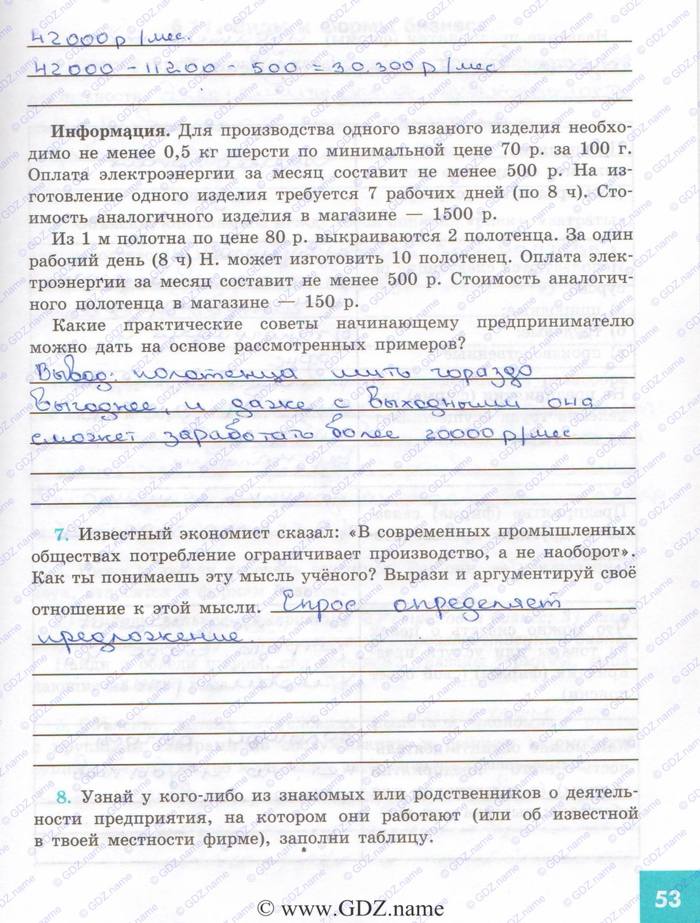 42000р/мес.
42000 - 11200 - 500 = 30.300р/мес
Информация. Для производства одного вязаного изделия необхо-
димо не менее 0,5 кг шерсти по минимальной цене 70 р. за 100 г.
Оплата электроэнергии за месяц составит не менее 500 р. На из-
готовление одного изделия требуется 7 рабочих дней (по 8 ч). Сто-
имость аналогичного изделия в магазине — 1500 р.
Из 1 м полотна по цене 80 р. выкраиваются 2 полотенца. За один
рабочий день (8 ч) Н. может изготовить 10 полотенец. Оплата элек-
троэнергии за месяц составит не менее 500 р. Стоимость аналогич-
ного полотенца в магазине — 150 р.
Какие практические советы начинающему предпринимателю
можно дать на основе рассмотренных примеров?
Вывод: полотенца шить гораздо
выгоднее, и даже с выходными она
сможет заработать более 20000р/мес
7. Известный экономист сказал: «В современных промышленных
обществах потребление ограничивает производство, а не наоборот».
Как ты понимаешь эту мысль учёного? Вырази и аргументируй своё
отношение к этой мысли. Спрос определяет
предложение.
8. Узнай у кого-либо из знакомых или родственников о деятель-
ности предприятия, на котором они работают (или об известной
в твоей местности фирме), заполни таблицу.
53
© www.GDZ.name